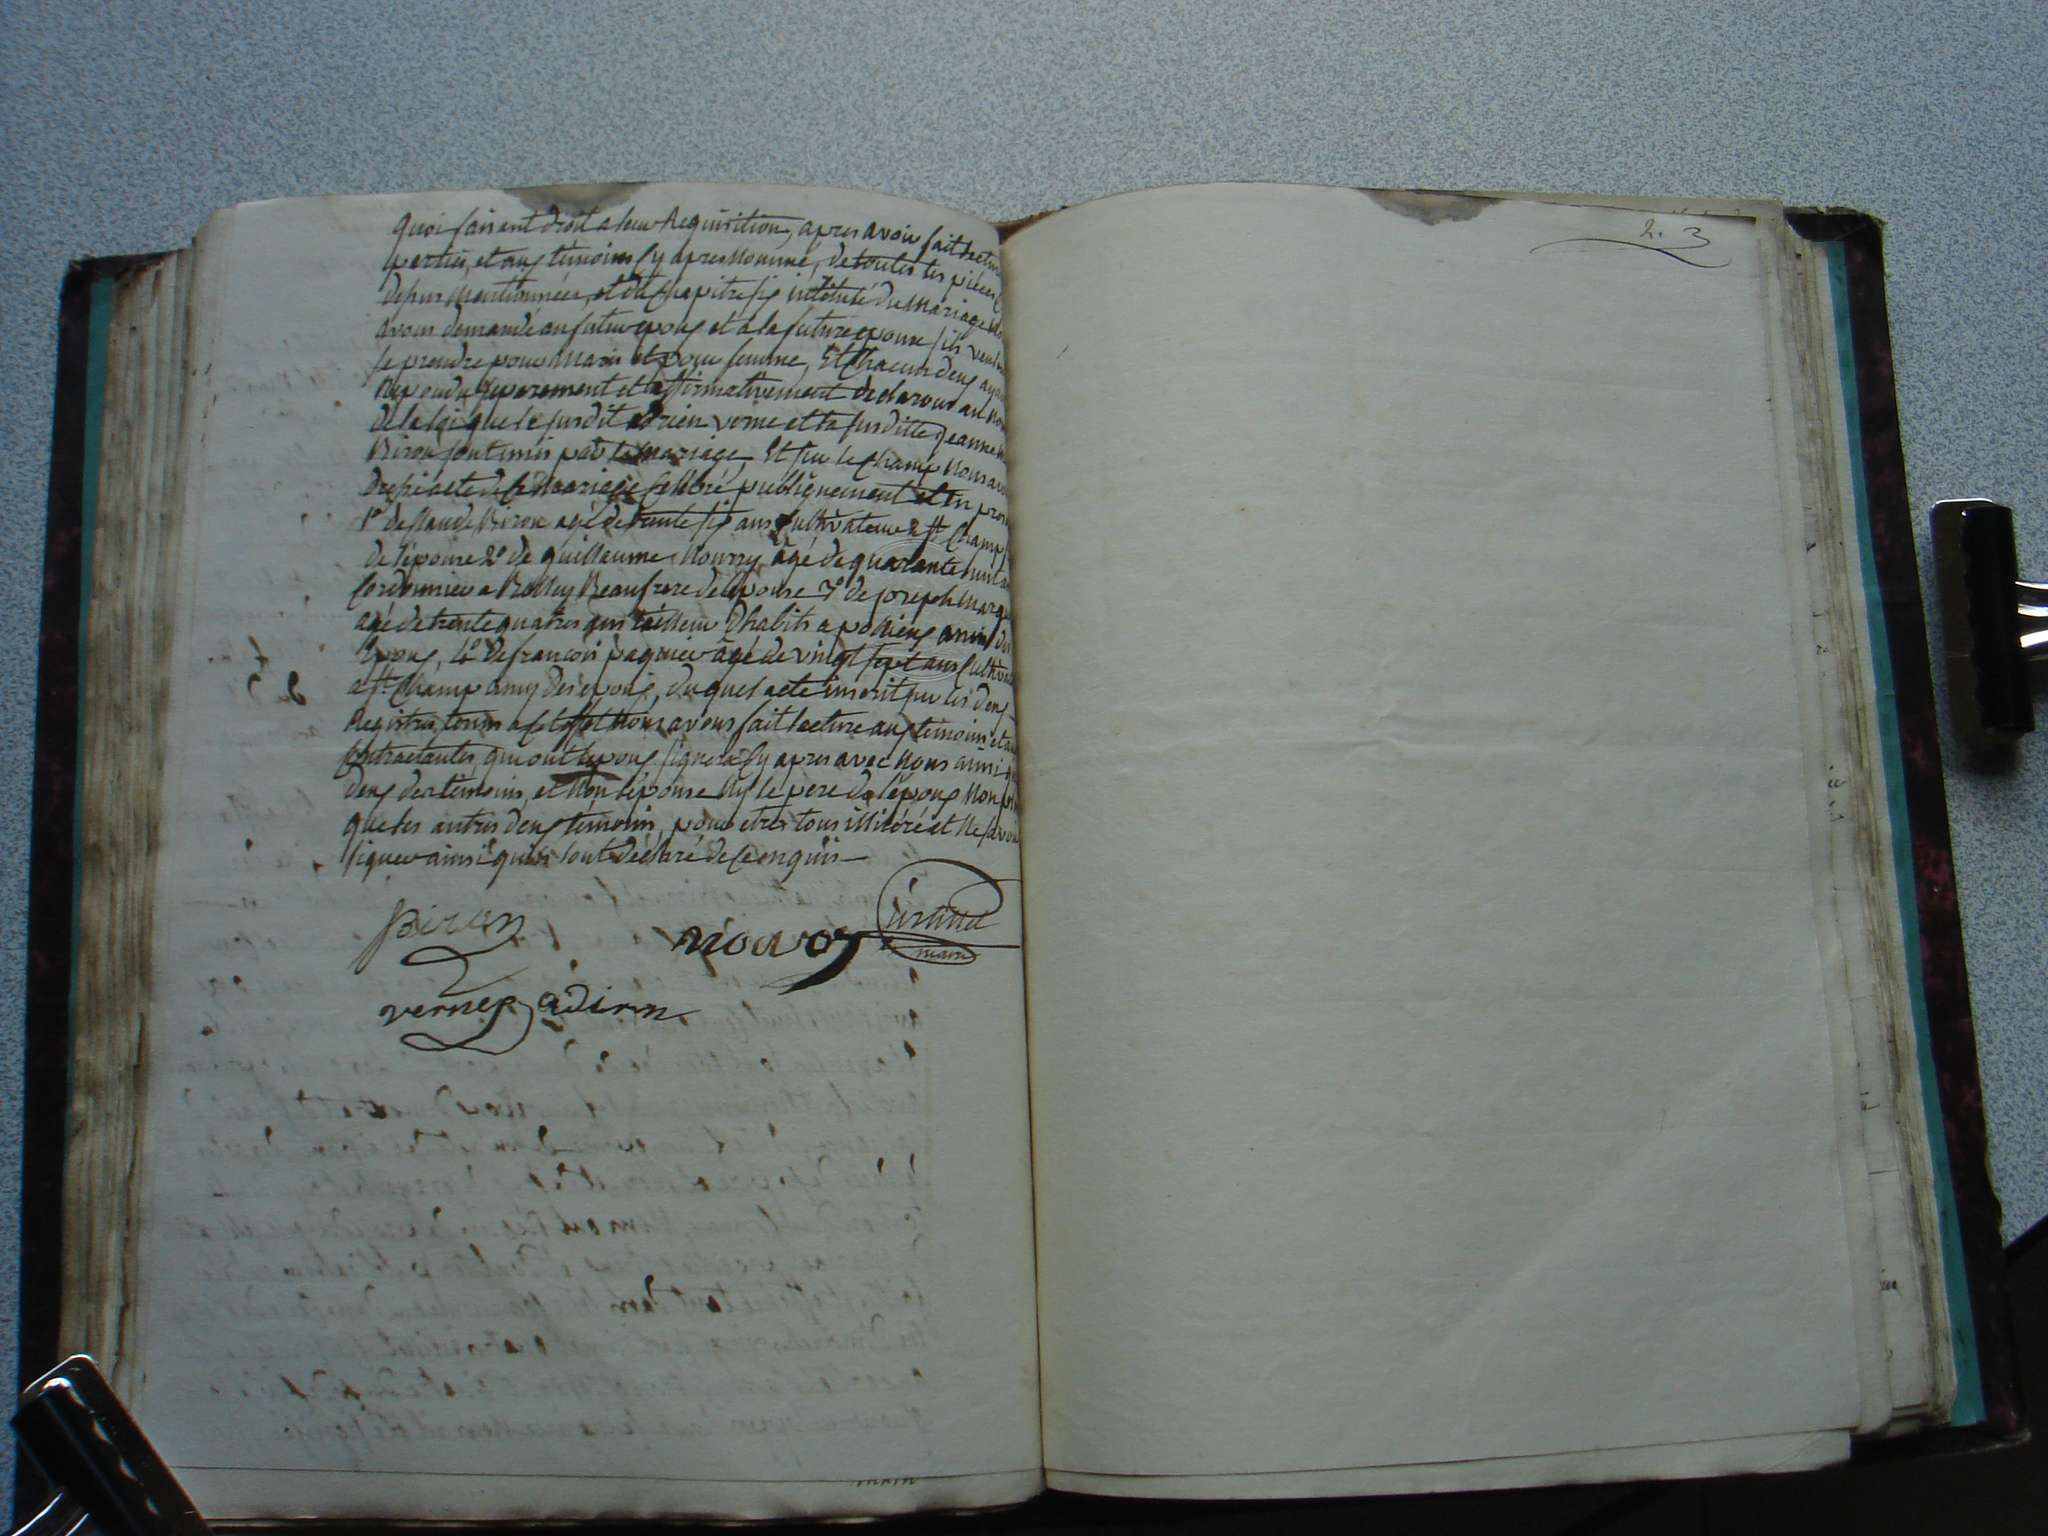 quoi faisant droit a leur Requisition, apres avoir fait lecture
parties, et aux témoins cy apres Nommé, de toutes les pièces
dessus Mentionnées, et du Chapitre six intitulé du Mariage
avons demandé au futur epoux et a la future epouse s'ils veulent
se prendre pour Maris et pour femme, Et Chacun d'eux ayant
Repondu separement et affirmativement declarons au Nom
de la loi que le susdit adrien verne et la susditte Jeanne
Biron sont unis par le mariage, Et sur le Champ Nous avons
dressé acte de ce Mariage Celébré publiquement et en
1º de Claude Biron agé de trente six ans Cultivateur a St. Champ
de l'épouse 2º de guillaume Nourry âgé de quarante huit
Cordonnier a Beaufrere de l'epouse 3º de joseph
agé de trente quatres ans tailleur D'habits a amis des
Epoux, 4º De françois paquier âgé de vingt sept ans Cultiv
a St. Champ amy des epoux, duquel acte inscrit sur les deux
Registres tenus a Cet Effet Nous avons fait lecture aux témoins et
Contractantes, qui ont l'epoux signera Cy apres avec Nous ainsi
deux des témoins, et Non l'épouse Ny le pere de l'époux Non
que les autres deux témoins, pour etres tous illitéré et Ne
signer ainsi qu'ils l'ont déclaré de Ce enquis
2. 3
Biron
verne adirn
maire